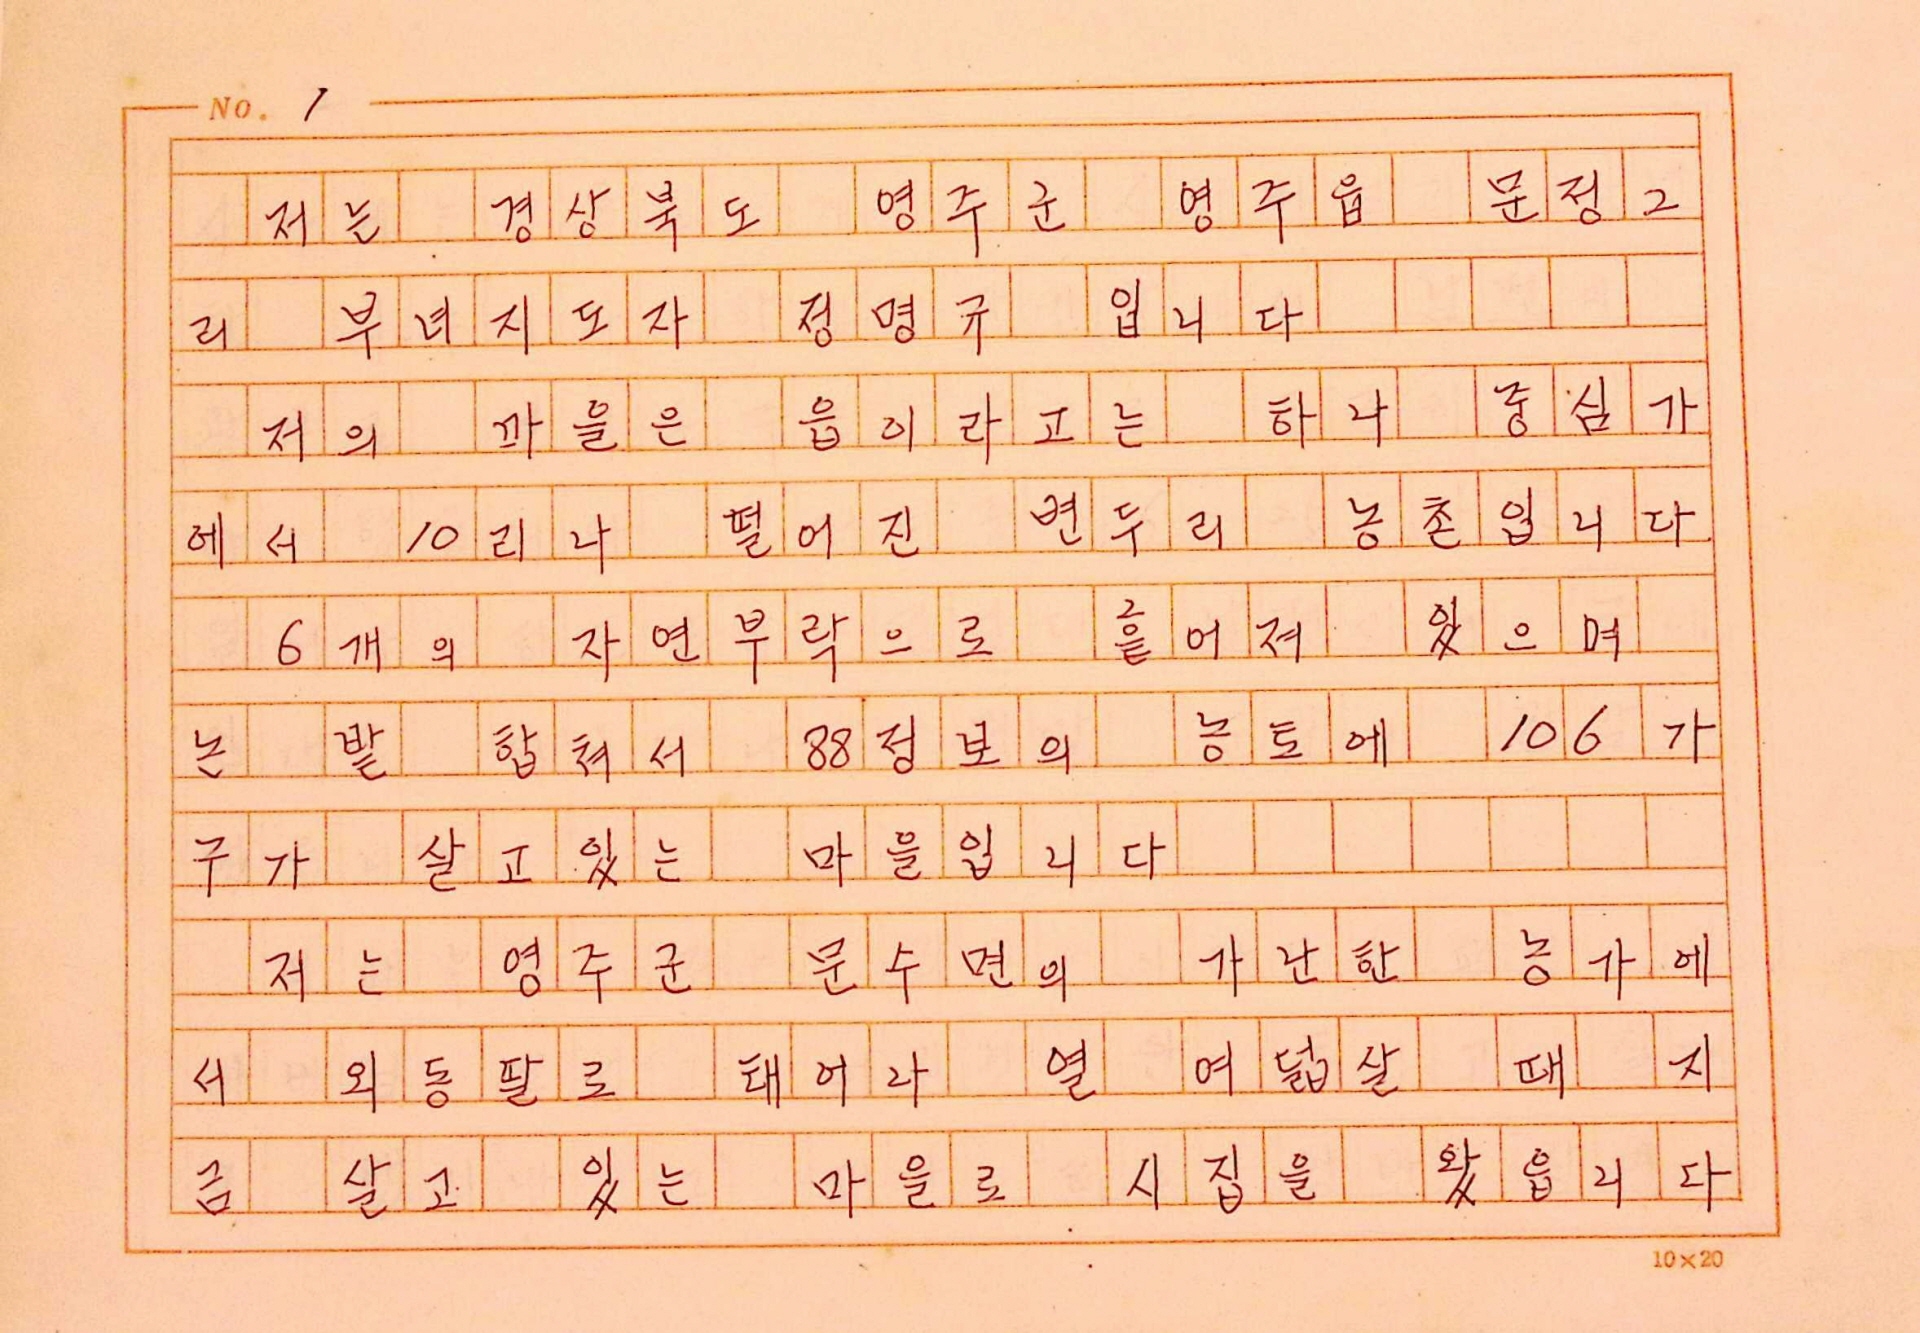 No. 1
저는 경상북도 영주군 영주읍 문정2
리 부녀지도자 정명규 입니다
저의 마을은 읍이라고는 하나 중심가
에서 10리나 떨어진 변두리 농촌입니다
6개의 자연부락으로 흩어져 있으며
논 밭 합쳐서 88정보의 농토에 106가
구가 살고있는 마을입니다
저는 영주군 문수면의 가난한 농가에
서 외동딸로 태어나 열 여덟살 때 지
금 살고 있는 마을로 시집을 왔읍니다
10×20